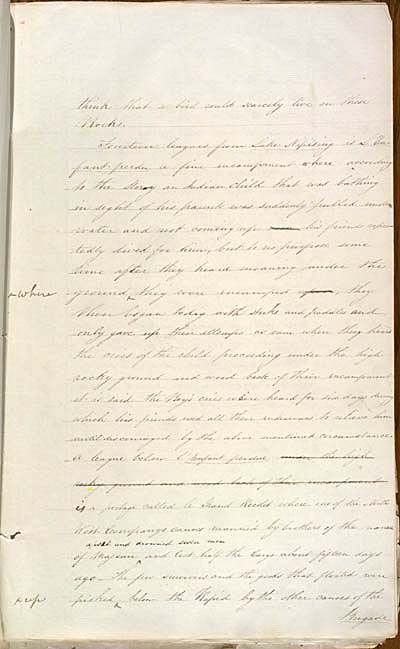 think that a bird could scarcely live on these
Rocks.
Fourteen leagues from Lake Nipising is L'En-
fant perdu, a fine encampment where according
to the story an Indian child that was bathing
in sight of his parents was suddenly pulled under
water and not coming up his friend repea-
tedly dived for him, but to no purpose some
time after they heard moaning under the
+where
ground ^ they were encamped they
then began to dig with sticks and paddles and
only gave up their attempts as vain when they heard
the cries of the child proceeding under the high
rocky ground and wood back of their encampment
it is said the Boy's cries where heard for six days during
which his friends used all their endeavours to relieve him
until discouraged by the above mentioned circumstance
a league below L'enfant perdue under the high
rocky ground and wood back of their encampment
is a portage called le Grand Recolet where one of the North
West Companys canoes manned by brothers of the name
upset and drowned seven men
of Majeau and lost half the Cargo about fifteen days
ago - The few survivors and the goods that floated were
+up
picked ^ below the Rapid by the other canoes of the
Brigade